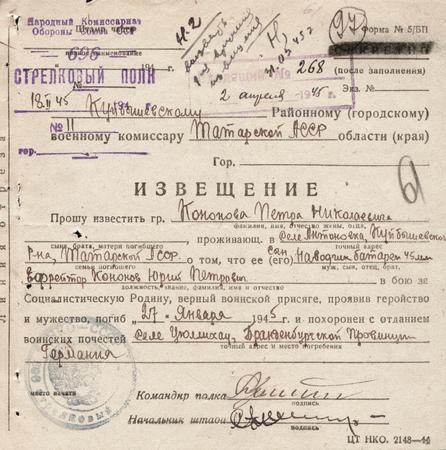 Народный Комиссариат
Обороны Союза ССР
Штамп части
696
СТРЕЛКОВЫЙ ПОЛК
194 г.
18 II 45
№ 11
гор.
Н-2
31.03.45 г
97
Форма № 5/БП
СЕКРЕТНО
(после заполнения)
Экз. №
№ 268
2 апреля 1945
Куйбышевскому Районному (городскому)
военному комиссару Татарской АССР области (края)
Гор.
ИЗВЕЩЕНИЕ
Прошу известить гр. Кононова Петра Николаевича
фамилия, имя, отчество жены, отца,
проживающ. в селе Антоновка, Куйбышевского
сына, брата, матери погибшего точный адрес
р-на, Татарской АССР. о том, что ее (его) сын Наводчик батареи 45 мм
семьи погибшего муж, сын, отец, брат,
Ефрейтор Кононов Юрий Петрович в бою за
должность, звание, фамилия, имя и отчество
Социалистическую Родину, верный воинской присяге, проявив геройство
и мужество, погиб 27 Января 1945 г. и похоронен с отданием
воинских почестей Селе Бранденбургской Провинции
точный адрес и место погребения
Германия
место печати
Командир полка
подпись
Начальник штаба
подпись
ЦТ НКО. 2148-44
Линия отреза